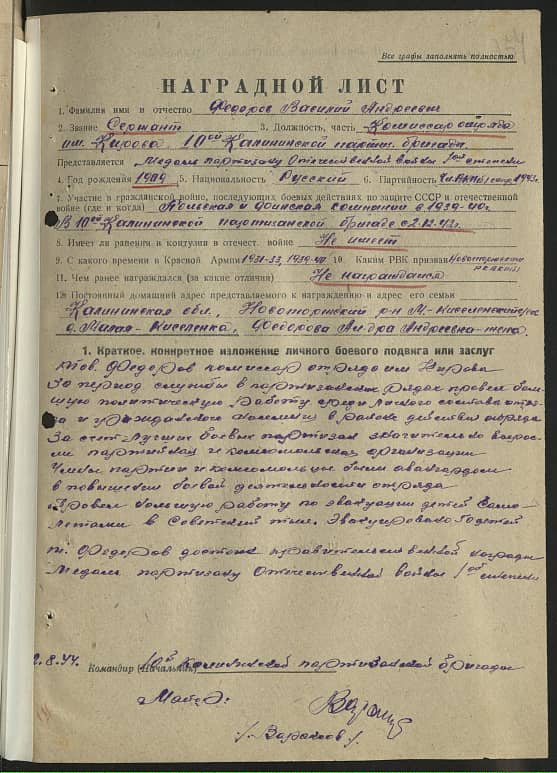 Все графы заполнять полностью
НАГРАДНОЙ ЛИСТ
1. Фамилия имя и отчество Федоров Василий Андреевич
2. Звание Сержант 3. Должность, часть Комиссар отряда
им. Кирова 10ой Калининской партиз. бригады
Представляется Медали партизану Отечественной войны 1ой степени
4. Год рождения 1909 5. Национальность Русский 6. Партийность чл. ВКП(б) 1943г.
7. Участие в гражданской войне, последующих боевых действиях по защите СССР и отечественной
войне (где и когда) Польская и финская компании в 1939-40г.
В 10ой Калининской партизанской бригаде с 2.12.42г.
8. Имеет ли ранения и контузии в отечест. войне Не имеет
9. С какого времени в Красной Армии 1931-33, 1939-40 10. Каким РВК призван Новоторжским
11. Чем ранее награждался (за какие отличия) Не награждался
12. Постоянный домашний адрес представляемого к награждению и адрес его семьи
Калининская обл., Новоторжский р-н М-Киселенский с/с
д. Малая-Киселенка, Федорова Андреевна-жена.
1. Краткое, конкретное изложение личного боевого подвига или заслуг
Тов. Федоров комиссар отряда им Кирова
За период службы в партизанских рядах провел боль-
шую политическую работу среди личного состава отря-
да и гражданского населения в районе действия отряда
За счет лучших боевых партизан значительно вырос-
ли партийная и комсомольская организации
Члены партии и комсомольцы были авангардом
в повышении боевой деятельности отряда
Провел большую работу по эвакуации детей само-
летами в Советский тыл. Эвакуировано детей
т. Федоров достоин правительственной награды
Медали партизану Отечественной войны 1ой степени
2.8.44. Командир (Начальник) 10ой Калининской партизанской бригады
Майор:
/ Вараксов /.